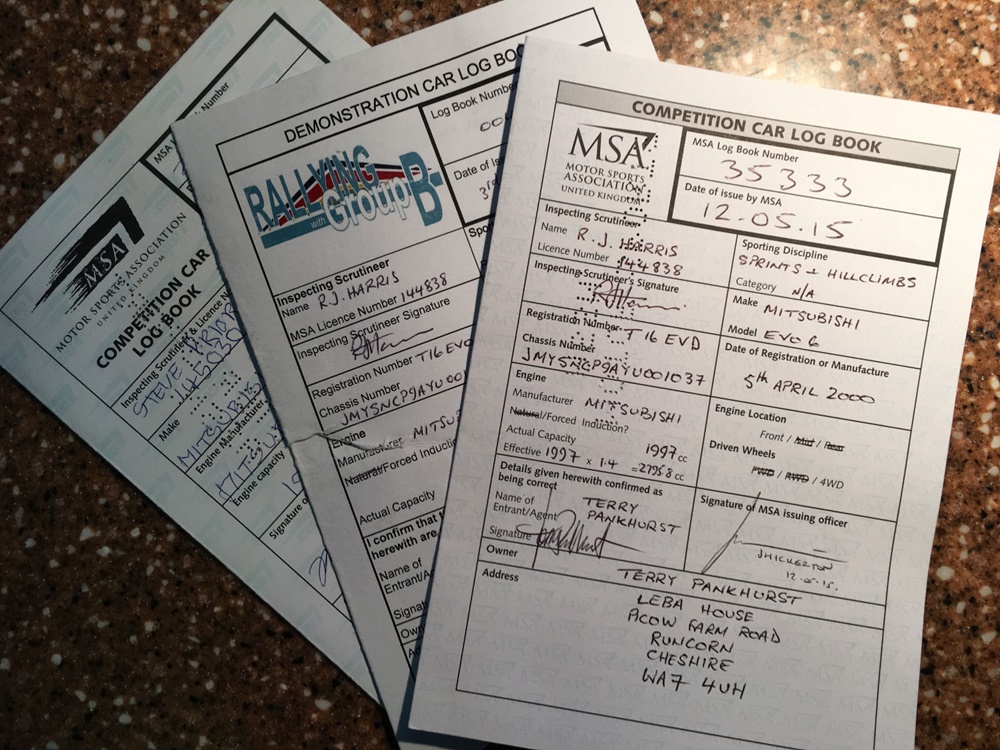 Number
MSA
MSA
MOTOR SPORTS ASSOCIATION
UNITED KINGDOM
COMPETITION CAR
LOG BOOK
Inspecting Scrutineer & Licence N
STEVE
Make
MITSUBIS
Engine Manufacturer
MITSUBI
Engine capacity
Signature o
DEMONSTRATION CAR LOG BO
Log Book Numbe
00
Date of Is
3rd
RALLYING
with Group B
Inspecting Scrutineer
Spo
Name R.J. HARRIS
MSA Licence Number 144838
Inspecting Scrutineer Signature
Registration Number T16 EVO
Chassis Number
JMYSNCP9AYU00
Engine
Manufacturer MITSU
Natural/Forced Induc
Actual Capacity
I confirm that t
herewith are
Name of
Entrant/A
Signat
Ow
A
COMPETITION CAR LOG BOOK
MSA
MOTOR SPORTS
ASSOCIATION
UNITED KINGDOM
MSA Log Book Number
35333
Date of issue by MSA
12.05.15
Inspecting Scrutineer
Name R.J. HARRIS
Licence Number 144838
Inspecting Scrutineer's Signature
Registration Number T16 EVO
Chassis Number
JMYSNCP9AYU001037
Engine
Manufacturer MITSUBISHI
Natural/Forced Induction?
Actual Capacity 1997 cc
Effective 1997 x 1.4 = 2795.8 cc
Details given herewith confirmed as
being correct
Name of
Entrant/Agent TERRY
PANKHURST
Signature
Sporting Discipline
SPRINTS + HILLCLIMBS
Category N/A
Make MITSUBISHI
Model EVO 6
Date of Registration or Manufacture
5th APRIL 2000
Engine Location
Front / Mid / Rear
Driven Wheels
FWD / RWD / 4WD
Signature of MSA issuing officer
12.05.15.
Owner TERRY PANKHURST
Address LEBA HOUSE
ACOW FARM ROAD
RUNCORN
CHESHIRE
WA7 4UH